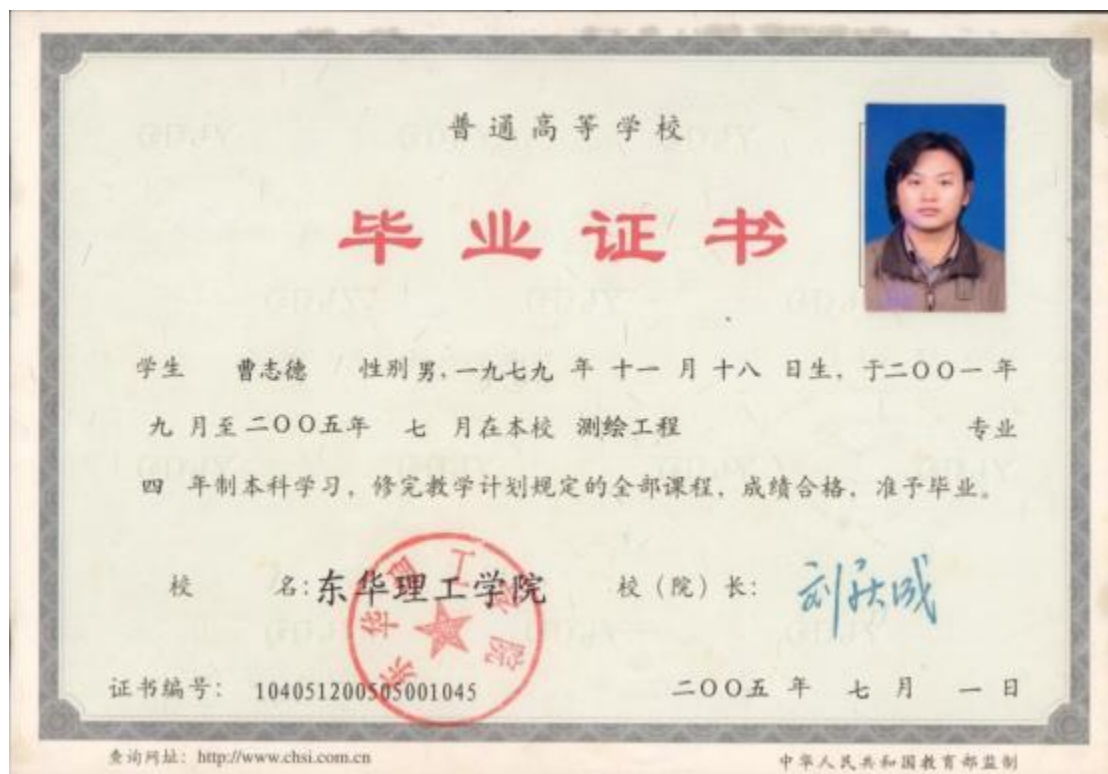 普通高等学校
毕业证书
学生 曹志德 性别男，一九七九 年 十一 月 十八 日生，于二〇〇一 年
九 月至 二〇〇五年 七 月在本校 测绘工程 专业
四 年制本科学习，修完教学计划规定的全部课程，成绩合格，准予毕业。
校 名：东华理工学院 校（院）长：
东华理工学院
证书编号： 104051200505001045 二〇〇五 年 七 月 一 日
查询网址：http://www.chsi.com.cn 中华人民共和国教育部监制